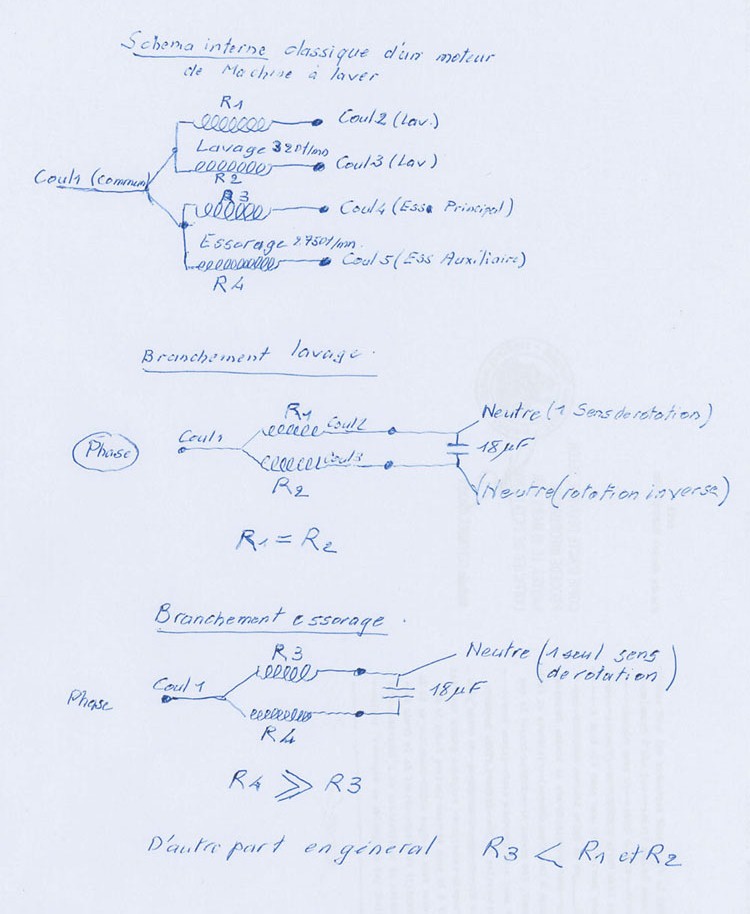 Schema interne classique d'un moteur
de Machine à laver
R1
Coul2 (Lav.)
Lavage 320T/mn
Coul3 (Lav)
R2
Coul1 (commun)
R3
Coul4 (Ess. Principal)
Essorage 2750T/mn.
Coul5 (Ess Auxiliaire)
R4
Branchement lavage.
R1
Coul2
Neutre (1 Sens de rotation)
Phase
Coul1
18µF
Coul3
R2
Neutre (rotation inverse)
R1 = R2
Branchement essorage.
R3
Neutre (1 seul sens
de rotation)
Coul1
18µF
Phase
R4
R4 >> R3
D'autre part en général R3 < R1 et R2